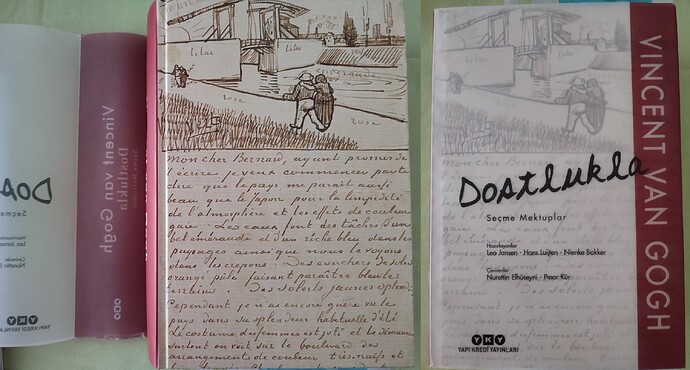 Dos
Seçme
Leo Jan
YKY
YAPI KREDİ YAYINLARI
Vincent van Gogh
Dostlukla
Seçme Mektuplar
YKY
lilas
lilas
rose
rose
Mon cher Bernard, ayant promis de
t'écrire je veux commencer par te
dire que le pays me parait aussi
beau que le Japon pour la limpidité
de l'atmosphère et les effets de couleur
gaie. Les eaux font des tâches d'un
bel émeraude et d'un riche bleu dans les
paysages ainsi que nous le voyons
dans les crepons. Des couchers de soleil
orangé pâle faisant paraître bleu les
terrains. Des soleils jaunes splend.
Cependant je n'ai encore guère vu le
pays dans sa splendeur habituelle d'été
Le costume des femmes est joli et le dimanche
surtout on voit sur le boulevard des
arrangements de couleur très naïfs et
VINCENT VAN GOGH
Dostlukla
Seçme Mektuplar
Hazırlayanlar
Leo Jansen · Hans Luijten · Nienke Bakker
Çevirenler
Nurettin Elhüseyni · Pınar Kür
YKY
YAPI KREDİ YAYINLARI